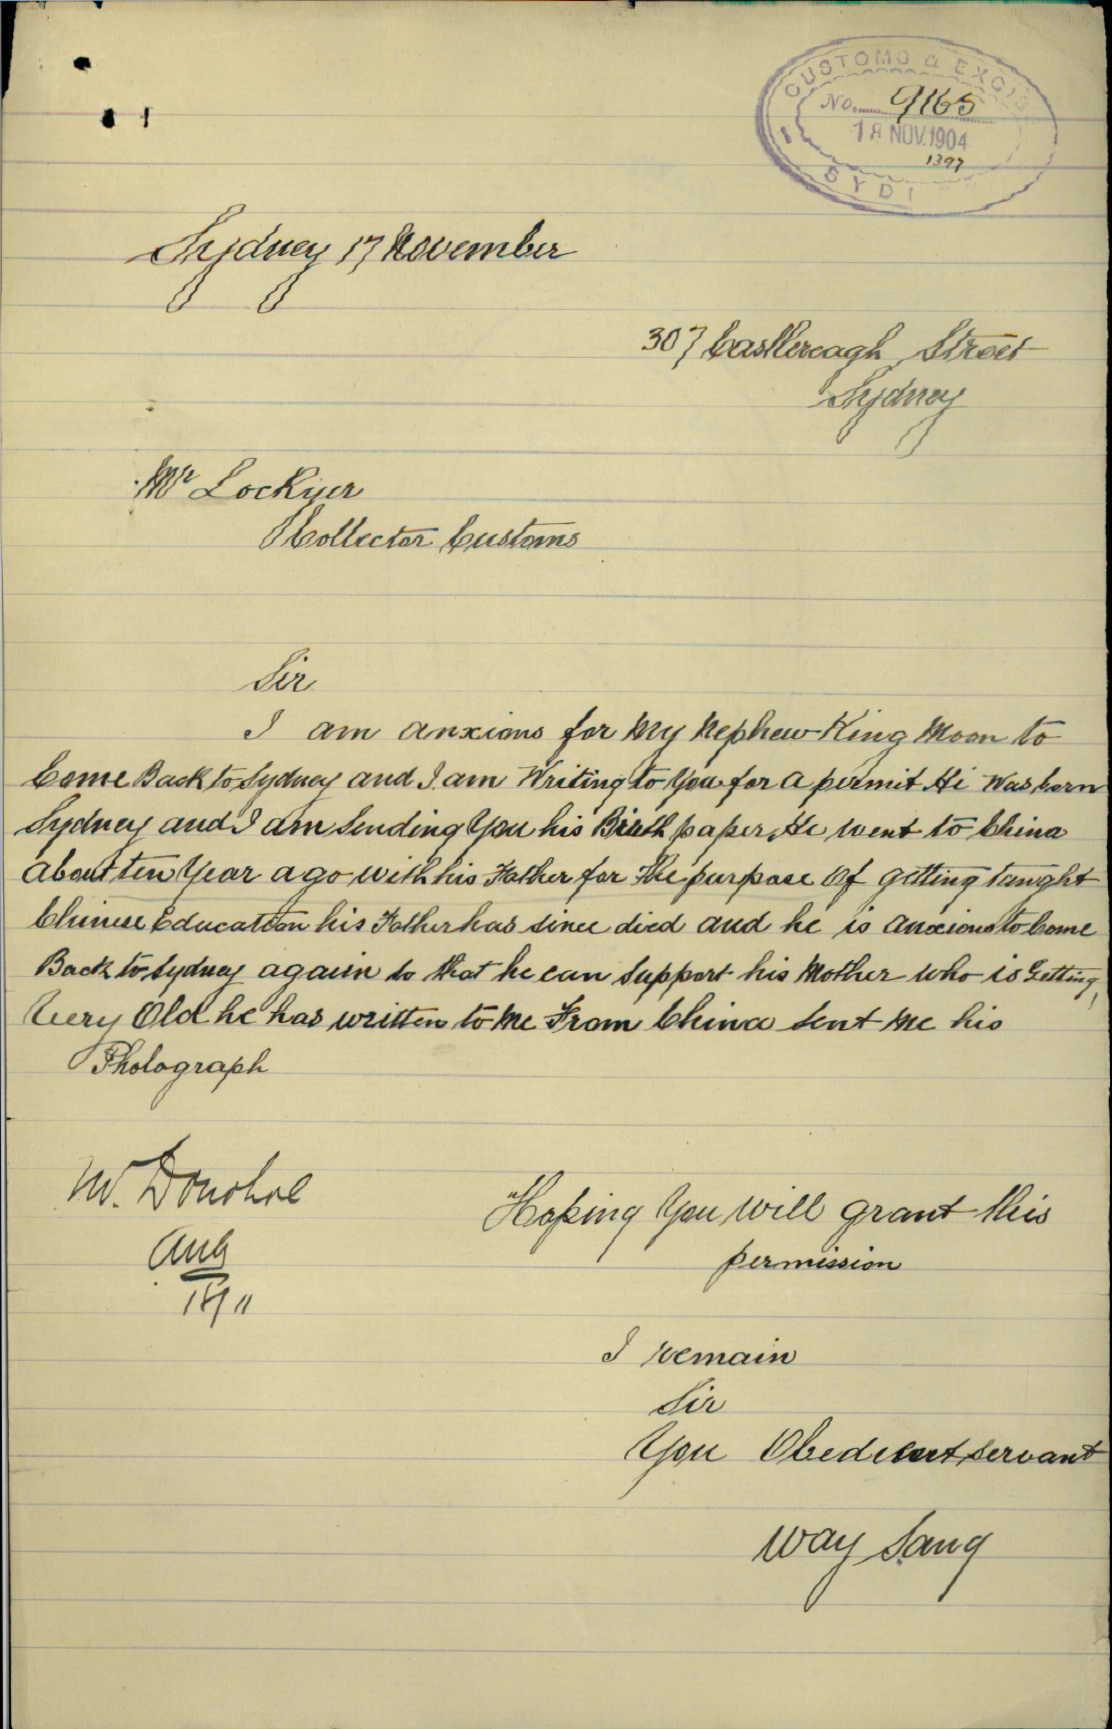 CUSTOMS & EXCIS
No. 9165
18 NOV. 1904
1397
SYD
Sydney 17 November
307 Castlereagh Street
Sydney
Mr Lockyer
Collector Customs
Sir
I am anxious for My Nephew King Moon to
Come Back to Sydney and I am Writing to You for a permit He Was born
Sydney and I am Sending You his Birth paper, He went to China
about ten Year ago with his Father for the purpose Of getting taught
Chinese Education his Father has since died and he is anxious to Come
Back to Sydney again so that he can Support his Mother who is Getting
Very Old he has written to Me From China Sent Me his
Photograph
W. Donohoe
Hoping You Will grant this
permission
I remain
Sir
You Obedient servant
Way Sang